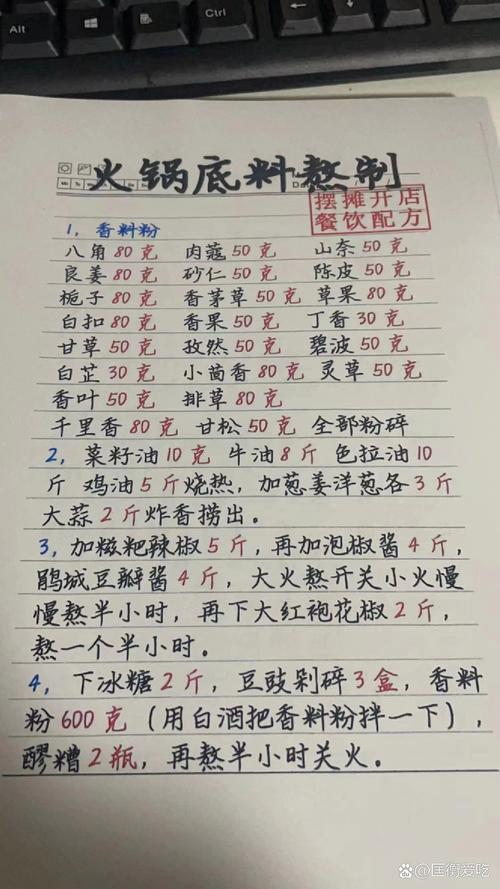 Alt
火锅底料熬制
摆摊开店
餐饮配方
1, 香料粉
八角 80 克 肉蔻 50 克 山奈 50 克
良姜 80 克 砂仁 50 克 陈皮 50 克
栀子 80 克 香茅草 50 克 草果 80 克
白扣 80 克 香果 50 克 丁香 30 克
甘草 50 克 孜然 50 克 碧波 50 克
白芷 30 克 小茴香 80 克 灵草 50 克
香叶 50 克 排草 80 克
千里香 80 克 甘松 50 克 全部粉碎
2, 菜籽油 10 克 牛油 8 斤 色拉油 10
斤 鸡油 5 斤烧热, 加葱姜洋葱各 3 斤
大蒜 2 斤炸香捞出。
3, 加糍粑辣椒 5 斤, 再加泡椒酱 4 斤,
鹃城豆瓣酱 4 斤, 大火熬开关小火慢
慢熬半小时, 再下大红袍花椒 2 斤,
熬一个半小时。
4, 下冰糖 2 斤, 豆豉剁碎 3 盒, 香料
粉 600 克 (用白酒把香料粉拌一下),
醪糟 2 瓶, 再熬半小时关火。
@匡衡爱吃